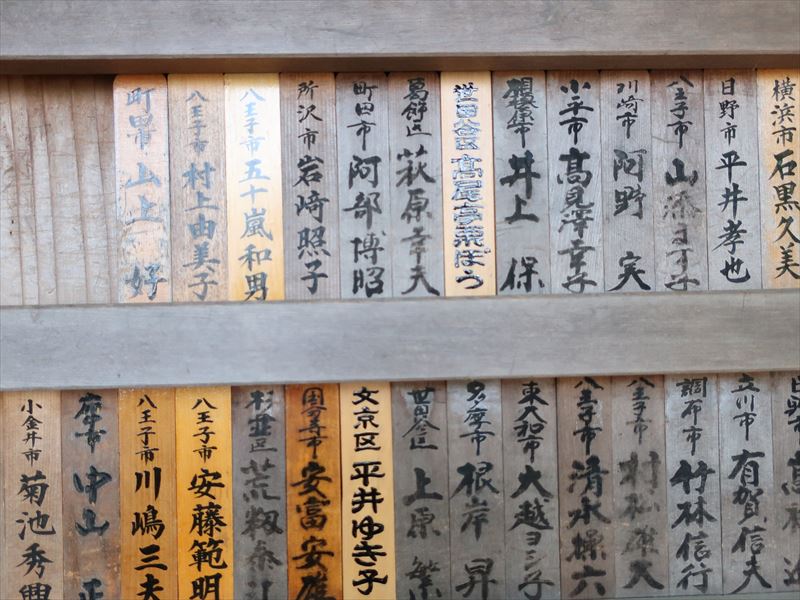 横浜市 石黒久美
日野市 平井孝也
八王子市 山添ヨ
川崎市 阿野 実
小平市 高見澤幸子
相模原市 井上 保
葛飾区 萩原幸夫
世田谷区 高尾亭粟ぼう
町田市 阿部博昭
所沢市 岩崎照子
八王子市 五十嵐和男
八王子市 村上由美子
町田市 山上 好
日野市 高
立川市 有賀信夫
調布市 竹林信行
八王子市 村松
八王子市 清水操六
東大和市 大越ヨシ子
多摩市 根岸 昇
世田谷区 上原 繁
文京区 平井ゆき子
国分寺市 安富安
杉並区 荒
八王子市 安藤範明
八王子市 川嶋三夫
中山 正
小金井市 菊池秀興